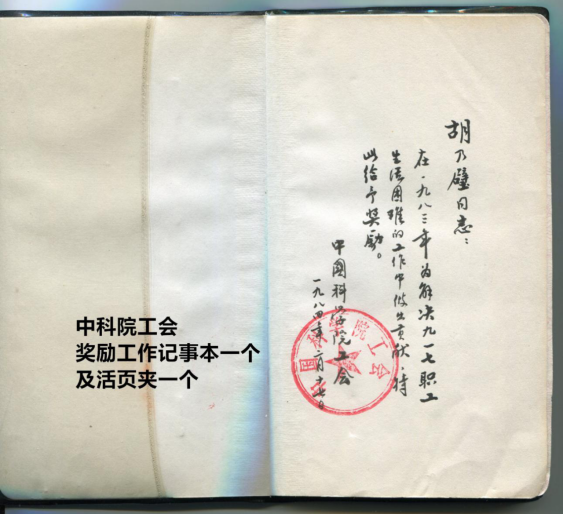 胡乃壁同志：
在一九八三年为解决九一七职工
生活困难的工作中做出贡献 特
此给予奖励。
中国科学院工会
一九八四年二月十七日
中国科学院工会
中科院工会
奖励工作记事本一个
及活页夹一个